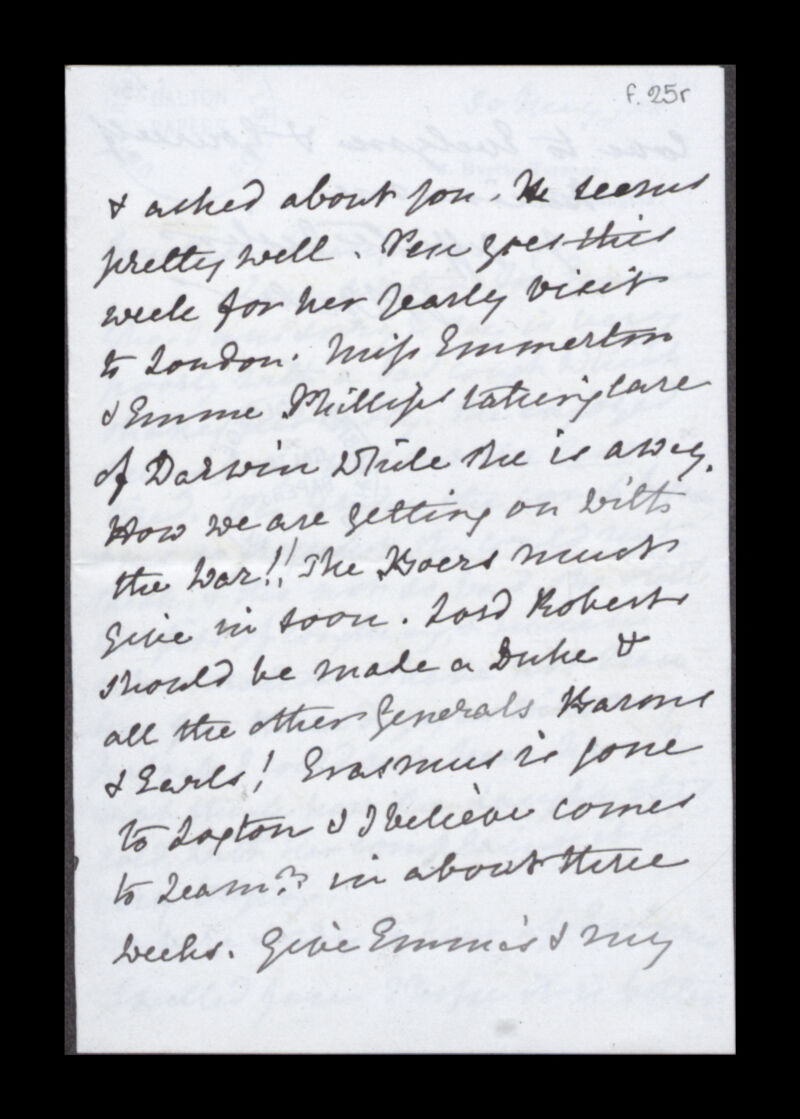 f. 25r
& asked about you. He seems
pretty well. goes this
week for her yearly visit
to London. Miss Emmerton
& Emme Phillips taking care
of Darwin while she is away.
How we are getting on with
the War!! The Boers must
give in soon. Lord Roberts
should be made a Duke &
all the other Generals Barons
& Earls! Erasmus is gone
to & I believe comes
to Leam:n in about three
weeks. Give Emma's & my